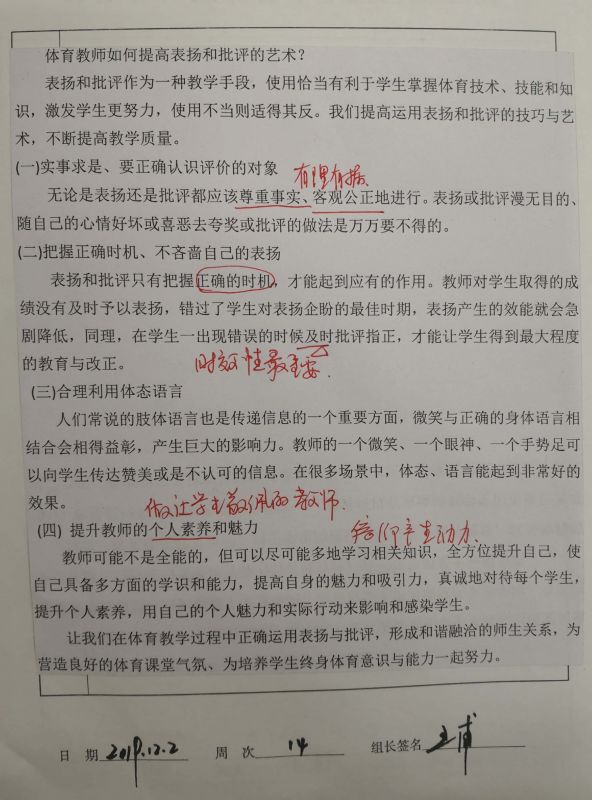 体育教师如何提高表扬和批评的艺术？
表扬和批评作为一种教学手段，使用恰当有利于学生掌握体育技术、技能和知
识，激发学生更努力，使用不当则适得其反。我们提高运用表扬和批评的技巧与艺
术，不断提高教学质量。
(一)实事求是、要正确认识评价的对象
有理有据
无论是表扬还是批评都应该尊重事实、客观公正地进行。表扬或批评漫无目的、
随自己的心情好坏或喜恶去夸奖或批评的做法是万万要不得的。
(二)把握正确时机、不吝啬自己的表扬
表扬和批评只有把握正确的时机，才能起到应有的作用。教师对学生取得的成
绩没有及时予以表扬，错过了学生对表扬企盼的最佳时期，表扬产生的效能就会急
剧降低，同理，在学生一出现错误的时候及时批评指正，才能让学生得到最大程度
的教育与改正。
时效性最重要.
(三)合理利用体态语言
人们常说的肢体语言也是传递信息的一个重要方面，微笑与正确的身体语言相
结合会相得益彰，产生巨大的影响力。教师的一个微笑、一个眼神、一个手势足可
以向学生传达赞美或是不认可的信息。在很多场景中，体态、语言能起到非常好的
效果。
做让学生敬佩的教师.
(四) 提升教师的个人素养和魅力
产生动力.
教师可能不是全能的，但可以尽可能多地学习相关知识，全方位提升自己，使
自己具备多方面的学识和能力，提高自身的魅力和吸引力，真诚地对待每个学生，
提升个人素养，用自己的个人魅力和实际行动来影响和感染学生。
让我们在体育教学过程中正确运用表扬与批评，形成和谐融洽的师生关系，为
营造良好的体育课堂气氛、为培养学生终身体育意识与能力一起努力。
日 期 2019.12.2 周 次 14 组长签名 王